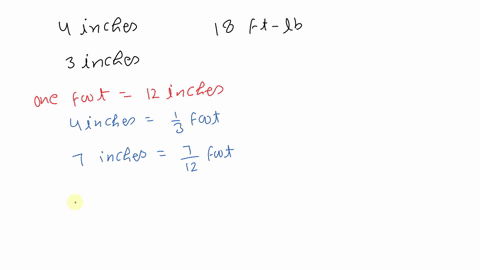 4 inches 18 ft-lb
3 inches
one foot = 12 inches
4 inches = 1/3 foot
7 inches = 7/12 foot